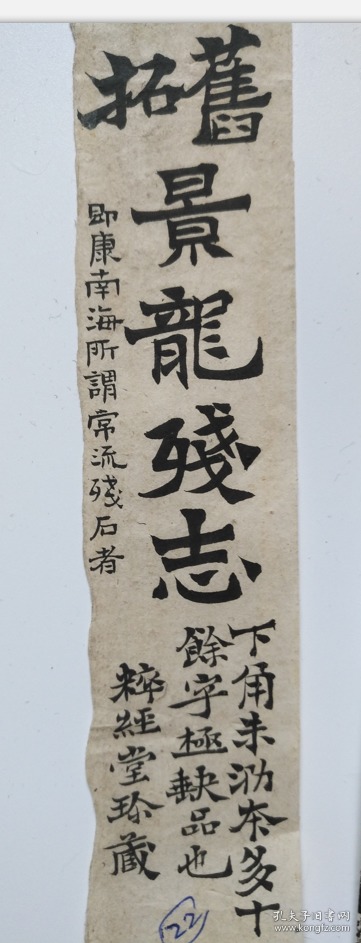 舊拓
景龍殘志
下角未泐本多十
餘字極缺品也
即康南海所謂常流殘石者
粹經堂珍藏
22
孔夫子旧书网
www.kongfz.com